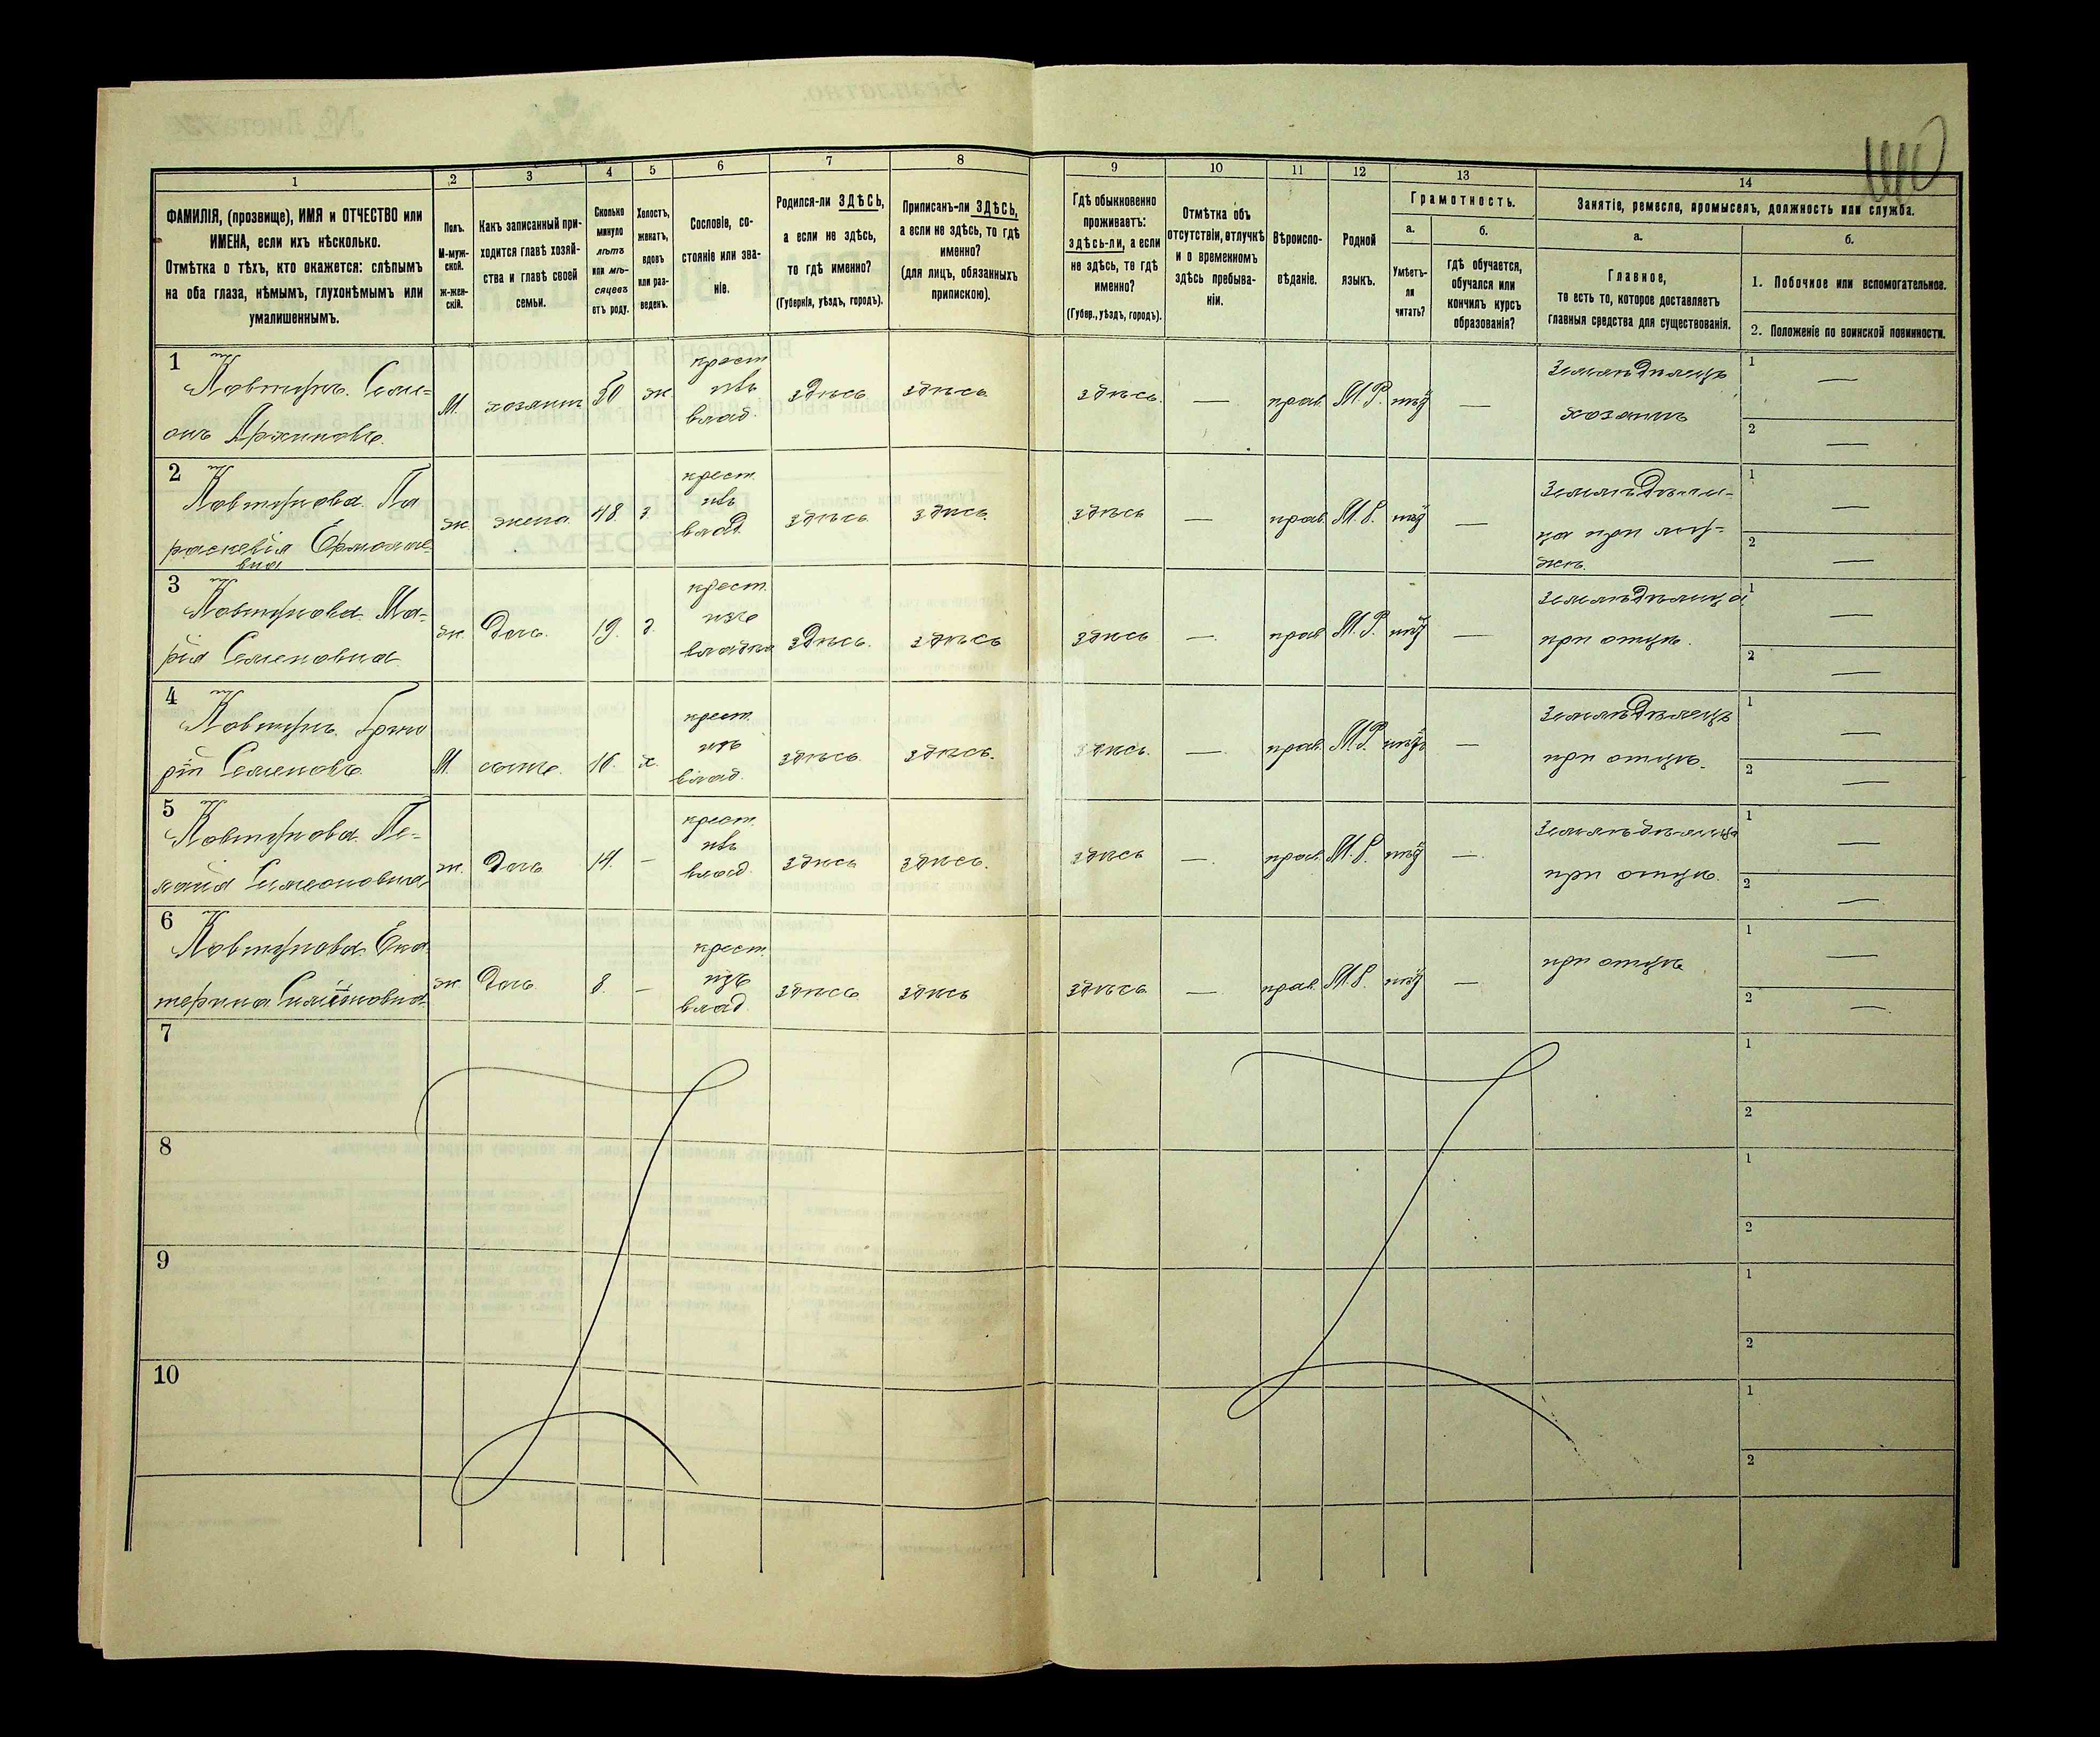 1
2
3
4
5
6
7
8
9
10
11
12
13
14
ФАМИЛІЯ, (прозвище), ИМЯ и ОТЧЕСТВО или
ИМЕНА, если ихъ нѣсколько.
Отмѣтка о тѣхъ, кто окажется: слѣпымъ
на оба глаза, нѣмымъ, глухонѣмымъ или
умалишеннымъ.
Полъ.
М-муж-
ской.
ж-жен-
скій.
Какъ записанный при-
ходится главѣ хозяй-
ства и главѣ своей
семьи.
Сколько
минуло
лѣтъ
или мѣ-
сяцевъ
отъ роду.
Холостъ,
женатъ,
вдовъ
или раз-
веденъ.
Сословіе, со-
стояніе или зва-
ніе.
Родился-ли ЗДѢСЬ,
а если не здѣсь,
то гдѣ именно?
(Губернія, уѣздъ, городъ).
Приписанъ-ли ЗДѢСЬ,
а если не здѣсь, то гдѣ
именно?
(для лицъ, обязанныхъ
припискою).
Гдѣ обыкновенно
проживаетъ:
здѣсь-ли, а если
не здѣсь, то гдѣ
именно?
(Губер., уѣздъ, городъ).
Отмѣтка объ
отсутствіи, отлучкѣ
и о временномъ
здѣсь пребыва-
ніи.
Вѣроиспо-
вѣданіе.
Родной
языкъ.
Грамотность.
а.
Умѣетъ-
ли
читать?
б.
гдѣ обучается,
обучался или
кончилъ курсъ
образованія?
Занятіе, ремесло, промыселъ, должность или служба.
а.
Главное,
то есть то, которое доставляетъ
главныя средства для существованія.
б.
1. Побочное или вспомогательное.
2. Положеніе по воинской повинности.
1
Ковтунъ Семе-
онъ
М. хозяинъ 50 ж. крест. изъ влад. здѣсь здѣсь здѣсь. — прав. М.Р. — Земледѣлецъ
хозяинъ
1 —
2 —
2
Ковтунова Па
раскевія Ермолае-
вна
ж. жена 48. з. крест. изъ влад. здѣсь здѣсь. здѣсь — прав. М.Р. — Земледѣли-
ца при му-
жѣ.
1 —
2 —
3
Ковтунова Ма-
рія Семеновна
ж. дочь. 19. д. крест. изъ здѣсь. здѣсь здѣсь — прав. М.Р. — Земледѣлица
при отцѣ.
1 —
2 —
4
Ковтунъ Григо
рій Семеновъ
М. сынъ. 16. х. крест. изъ влад. здѣсь здѣсь. здѣсь. — прав. М.Р. — Земледѣлецъ
при отцѣ.
1 —
2 —
5
Ковтунова Пе-
лагія Симеоновна
ж. дочь 14. — крест. изъ влад. здѣсь здѣсь. здѣсь — прав. М.Р. — Земледѣлица
при отцѣ.
1 —
2 —
6
Ковтунова Ека
терина Симеоновна
ж. дочь 8. — крест. изъ влад. здѣсь здѣсь здѣсь — прав. М.Р. — при отцѣ
1 —
2 —
7
1
2
8
1
2
9
1
2
10
1
2